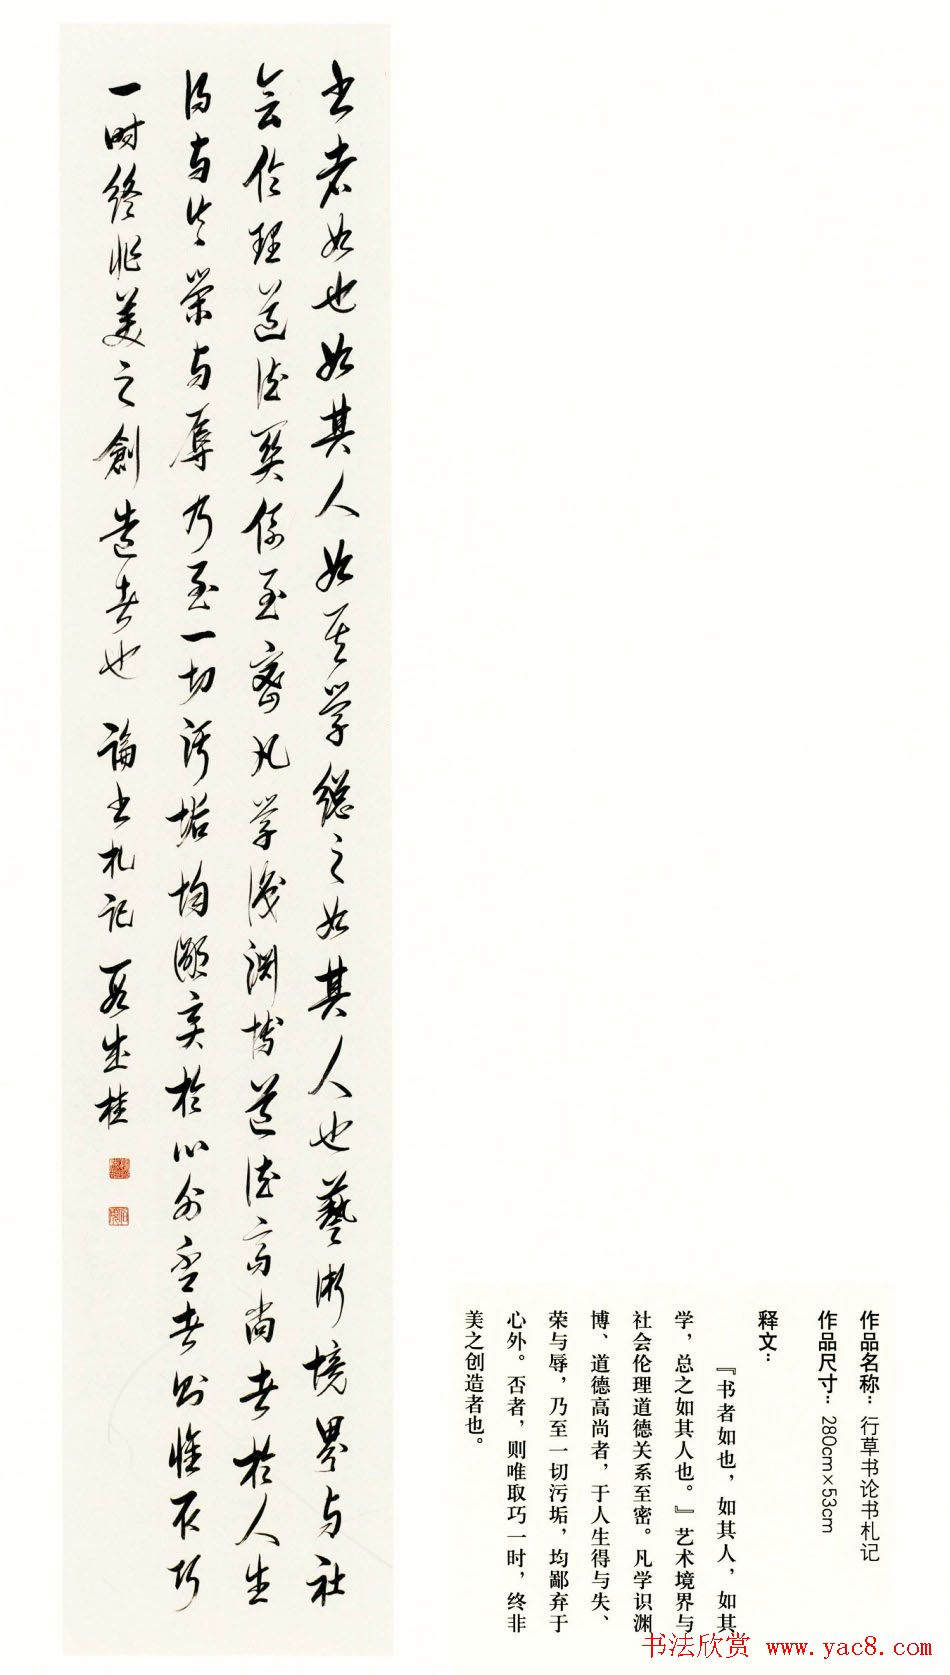 书者如也如其人如其学總之如其人也藝術境界与社
会伦理道德关係至密凡学識渊博道德高尚者於人生
得与失荣与辱乃至一切污垢均鄙弃於心外否者则惟取巧
一时终非美之創造者也 論书札记 段成桂
作品名称：行草书论书札记
作品尺寸：280cm×53cm
释文：
『书者如也，如其人，如其
学，总之如其人也。』艺术境界与
社会伦理道德关系至密。凡学识渊
博、道德高尚者，于人生得与失、
荣与辱，乃至一切污垢，均鄙弃于
心外。否者，则唯取巧一时，终非
美之创造者也。
书法欣赏 www.yac8.com